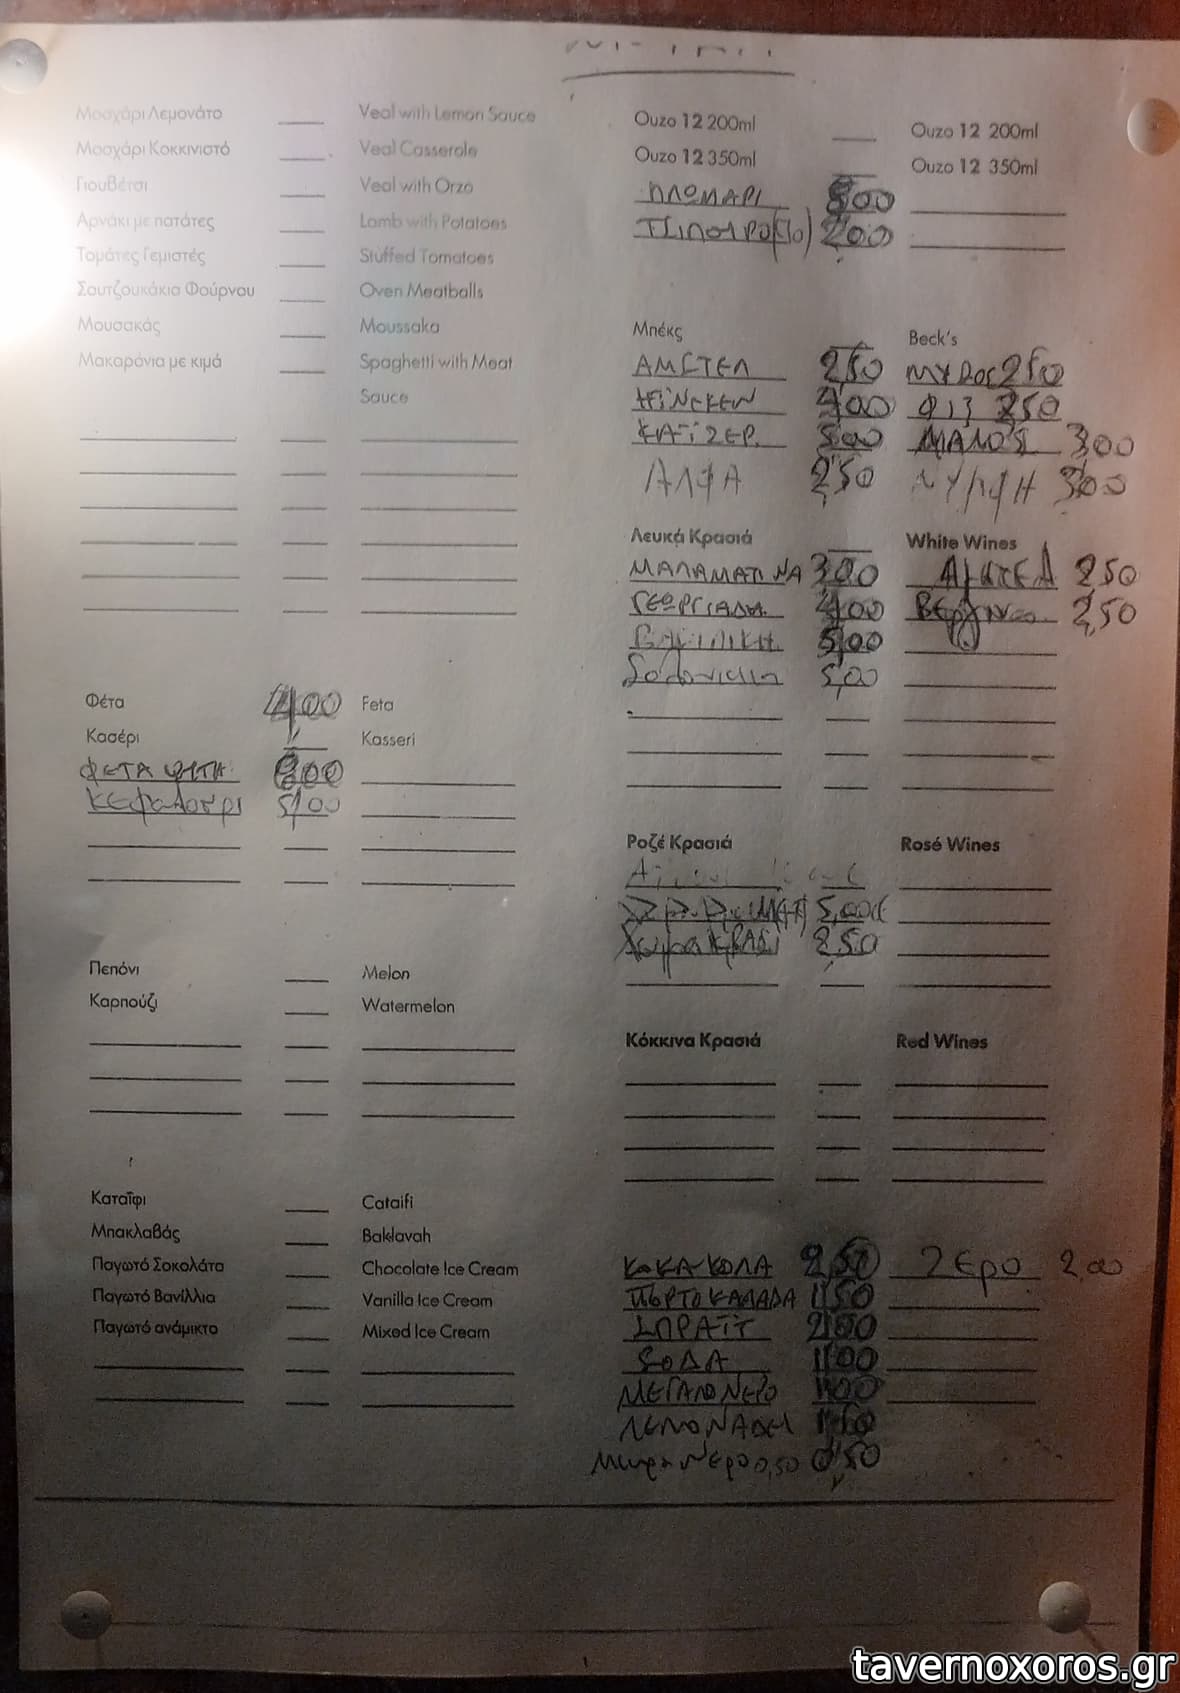 Μοσχάρι Λεμονάτο Veal with Lemon Sauce
Μοσχάρι Κοκκινιστό Veal Casserole
Γιουβέτσι Veal with Orzo
Αρνάκι με πατάτες Lamb with Potatoes
Τομάτες Γεμιστές Stuffed Tomatoes
Σουτζουκάκια Φούρνου Oven Meatballs
Μουσακάς Moussaka
Μακαρόνια με κιμά Spaghetti with Meat
Sauce
Φέτα 4,00 Feta
Κασέρι Kasseri
ΦΕΤΑ ΨΗΤΗ
Κεφαλοτύρι 5,00
Πεπόνι Melon
Καρπούζι Watermelon
Καταΐφι Cataifi
Μπακλαβάς Baklavah
Παγωτό Σοκολάτα Chocolate Ice Cream
Παγωτό Βανίλλια Vanilla Ice Cream
Παγωτό ανάμικτο Mixed Ice Cream
Ouzo 12 200ml Ouzo 12 200ml
Ouzo 12 350ml Ouzo 12 350ml
ΠΛΩΜΑΡΙ 8,00
ΤΣΙΠΟΥΡΟ 2,00
Μπέκς Beck's
ΑΜΣΤΕΛ 2,50 ΜΥΘΟΣ 2,50
ΧΑΪΝΕΚΕΝ 4,00 ΦΙΞ 2,50
ΚΑΪΖΕΡ. 5,00 3,00
ΑΛΦΑ 2,50 ΝΥΜΦΗ 3,00
Λευκά Κρασιά White Wines
ΜΑΛΑΜΑΤΙΝΑ 3,00 ΑΜΣΤΕΛ 2,50
ΓΕΩΡΓΙΑΔΗ 4,00 Βεργίνα 2,50
ΒΑΣΙΛΙΚΗ 5,00
5,00
Ροζέ Κρασιά Rosé Wines
5,00€
Χύμα ΚΡΑΣΙ 2,50
Κόκκινα Κρασιά Red Wines
ΚΟΚΑ-ΚΟΛΑ 2,50 Ζερο 2,00
ΠΟΡΤΟΚΑΛΑΔΑ 1,50
ΣΠΡΑΪΤ 2,00
ΣΟΔΑ 1,00
ΜΕΓΑΛΟ ΝΕΡΟ 1,00
ΛΕΜΟΝΑΔΕΣ 1,50
Μικρο Νερο 0,50 0,50
tavernoxoros.gr